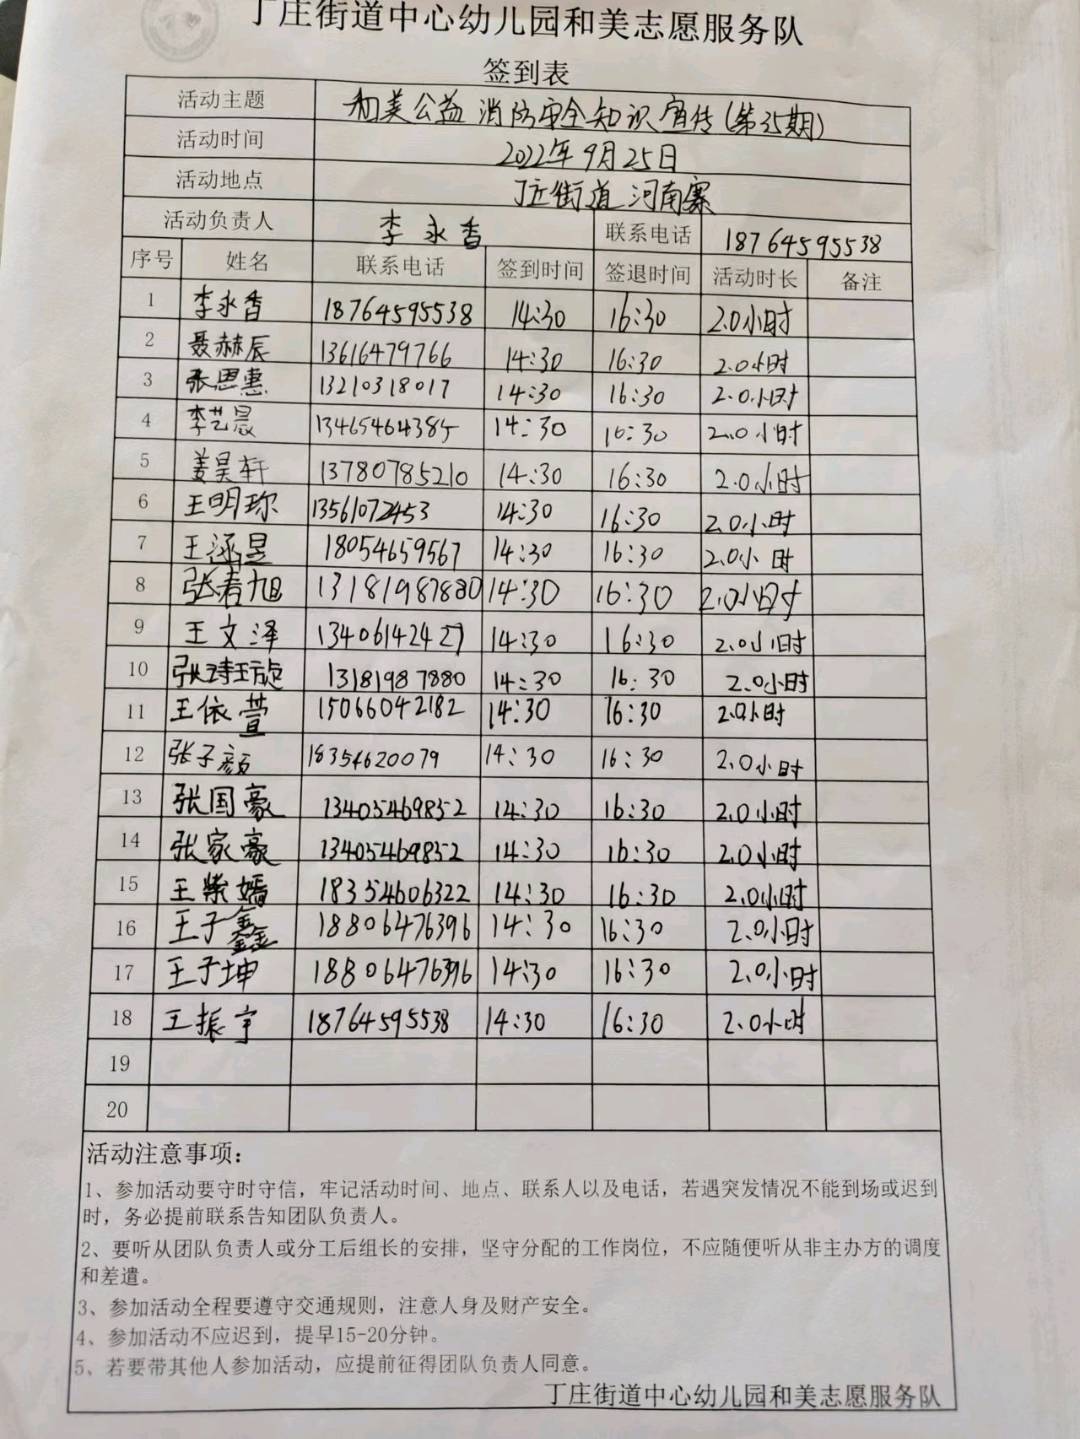 丁庄街道中心幼儿园和美志愿服务队
签到表
活动主题 和美公益 消防安全知识宣传(第35期)
活动时间 2022年9月25日
活动地点 丁庄街道 河南寨
活动负责人 李永香 联系电话 18764595538
序号 姓名 联系电话 签到时间 签退时间 活动时长 备注
1 李永香 18764595538 14:30 16:30 2.0小时
2 聂赫辰 13616479766 14:30 16:30 2.0小时
3 张思惠 13210318017 14:30 16:30 2.0小时
4 李艺晨 13465464385 14:30 16:30 2.0小时
5 姜昊轩 13780785210 14:30 16:30 2.0小时
6 王明珎 13561072453 14:30 16:30 2.0小时
7 王涵昱 18054659567 14:30 16:30 2.0小时
8 张君旭 13181987880 14:30 16:30 2.0小时
9 王文泽 13406142427 14:30 16:30 2.0小时
10 张诗琁 13181987880 14:30 16:30 2.0小时
11 王依萱 15066042182 14:30 16:30 2.0小时
12 张子颜 18354620079 14:30 16:30 2.0小时
13 张国豪 13405469852 14:30 16:30 2.0小时
14 张家豪 13405469852 14:30 16:30 2.0小时
15 王紫嫣 18354606322 14:30 16:30 2.0小时
16 王子鑫 18806476396 14:30 16:30 2.0小时
17 王子坤 18806476396 14:30 16:30 2.0小时
18 王振宇 18764595538 14:30 16:30 2.0小时
19
20
活动注意事项:
1、参加活动要守时守信，牢记活动时间、地点、联系人以及电话，若遇突发情况不能到场或迟到
时，务必提前联系告知团队负责人。
2、要听从团队负责人或分工后组长的安排，坚守分配的工作岗位，不应随便听从非主办方的调度
和差遣。
3、参加活动全程要遵守交通规则，注意人身及财产安全。
4、参加活动不应迟到，提早15-20分钟。
5、若要带其他人参加活动，应提前征得团队负责人同意。
丁庄街道中心幼儿园和美志愿服务队